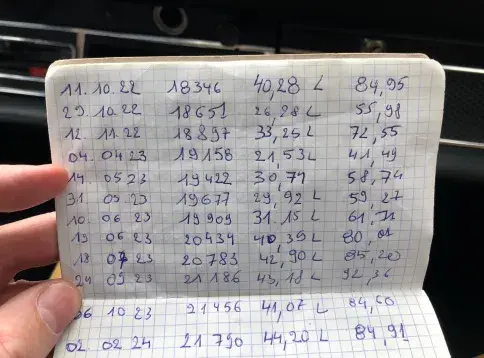 11. 10. 22 18346 40,28 L 84,95
29. 10 22 18651 26,28 L 55,98
12. 11 22 18897 33,25 L 72,55
04. 04 23 19158 21,53 L 41,49
14. 05 23 19422 30,71 58,74
31. 05 23 19677 29,92 L 59,27
10. 06 23 19909 31,15 L 61,71
19 06 23 20434 40,39 L 80,01
18 07 23 20783 42,90 L 85,20
24 09 23 21186 43,18 L 92,36
06 10 23 21456 41,07 L 84,60
02. 02 24 21790 44,20 L 84,91